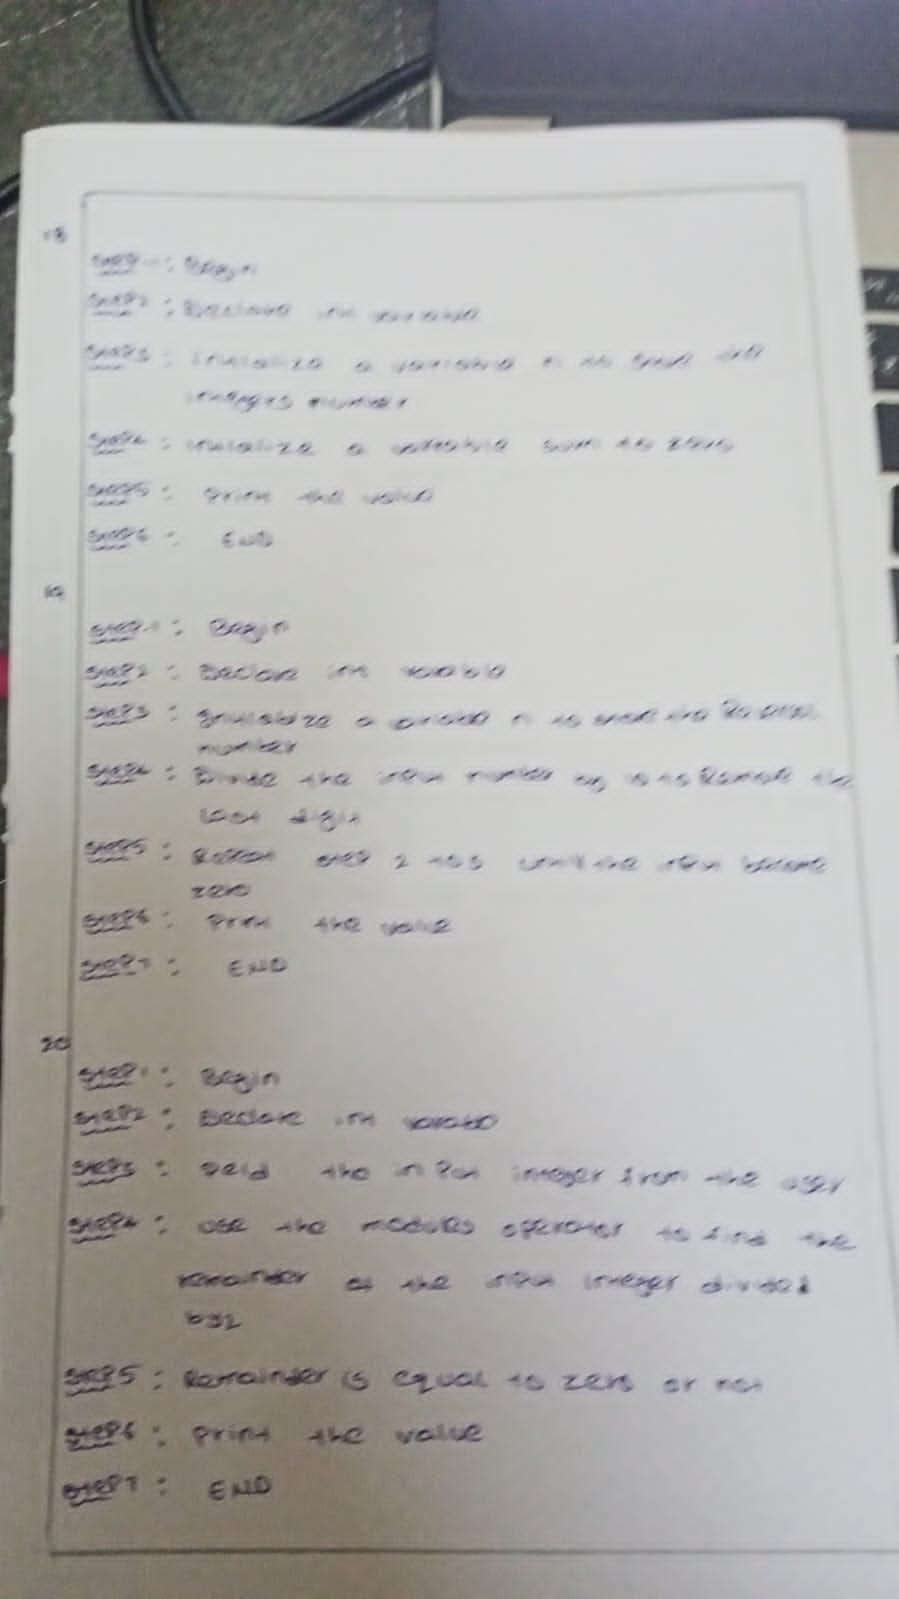 18
Step-1: Begin
Step2: Declare int variable
Step3: Initialize a variable n to store the
integers number
Step4: initialize a variable sum to zero
Step5: Print the value
Step6: END
19
Step-1: Begin
Step2: Declare int variable
Step3: Initialize a variable n to store the
number
Step4: Divide the input number by 10 to Remove the
last digit
Step5: Repeat step 2 to 5 until the input become
zero
Step6: Print the value
Step7: END
20
Step1: Begin
Step2: Declare int
Step3: the input integer from the user
Step4: use the modulus operator to find the
remainder of the input integer divided
by 2
Step5: Remainder is equal to zero or not
Step6: Print the value
Step7: END